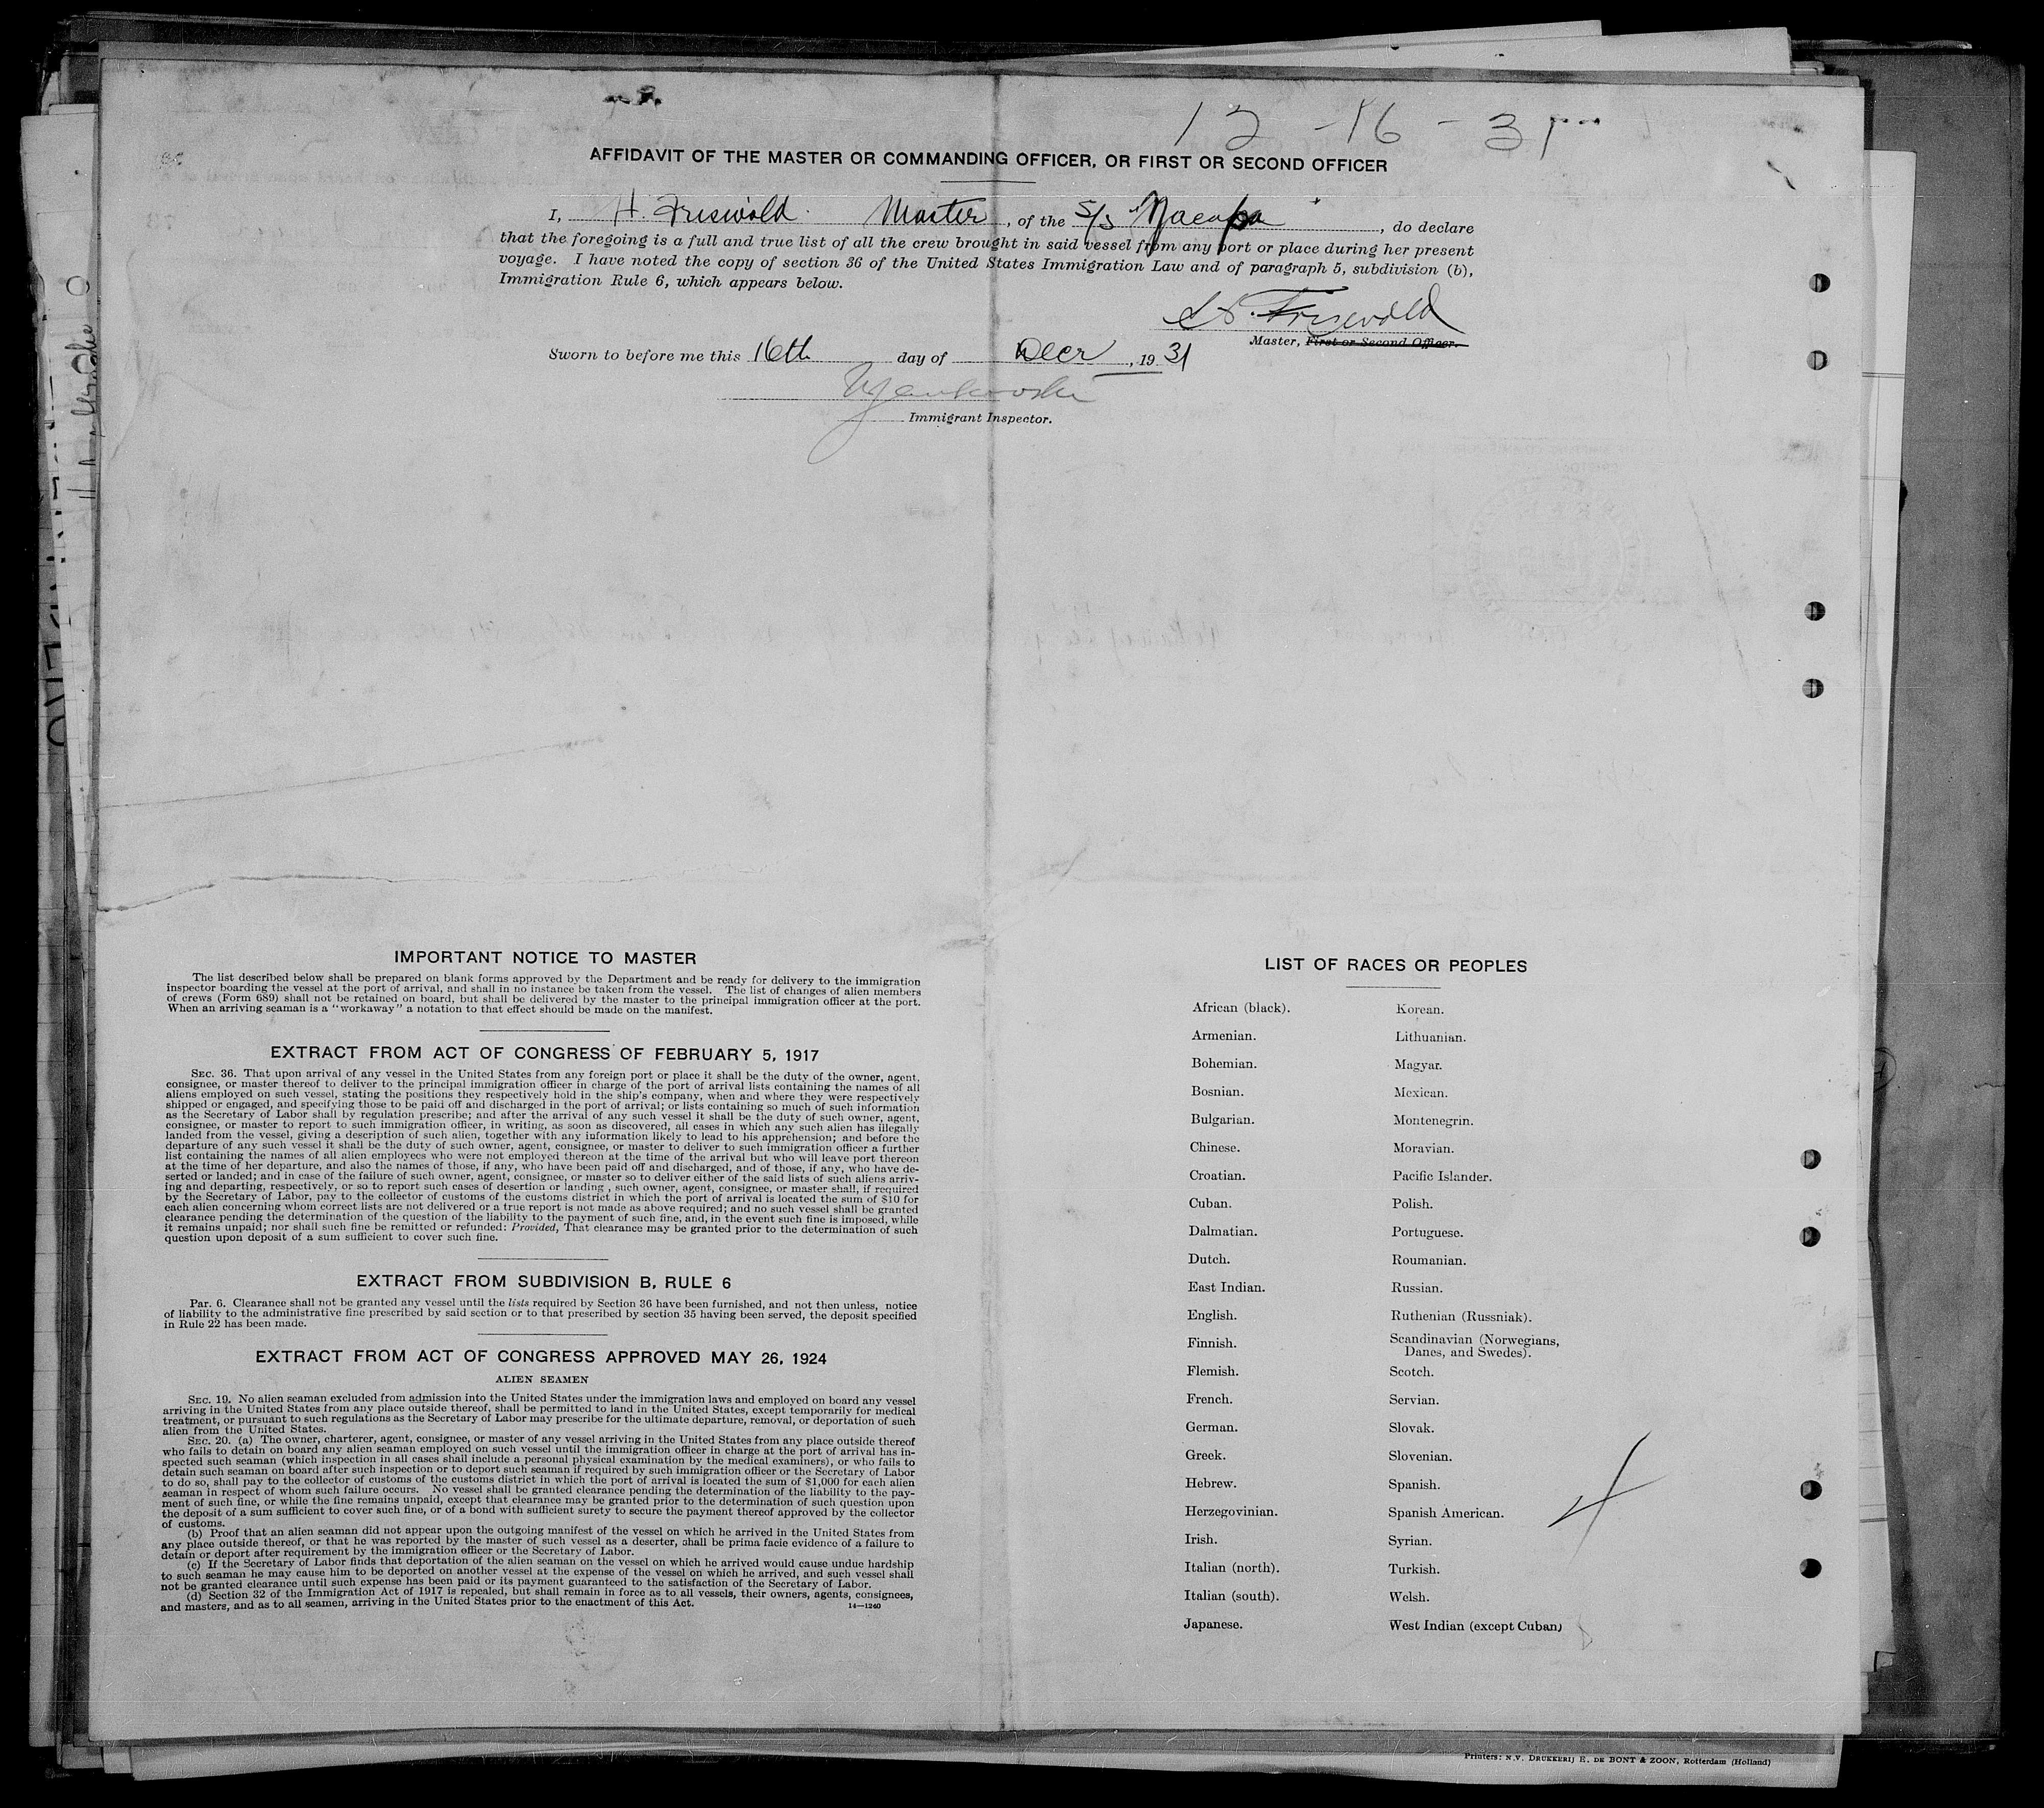 12-16-31
AFFIDAVIT OF THE MASTER OR COMMANDING OFFICER, OR FIRST OR SECOND OFFICER
I, H. Friswold. Master, of the S/S "Nacupa", do declare
that the foregoing is a full and true list of all the crew brought in said vessel from any port or place during her present
voyage. I have noted the copy of section 36 of the United States Immigration Law and of paragraph 5, subdivision (b),
Immigration Rule 6, which appears below.
Friswold
Master, First or Second Officer.
Sworn to before me this 16th day of Decr, 1931
Immigrant Inspector.
IMPORTANT NOTICE TO MASTER
The list described below shall be prepared on blank forms approved by the Department and be ready for delivery to the immigration
inspector boarding the vessel at the port of arrival, and shall in no instance be taken from the vessel. The list of changes of alien members
of crews (Form 689) shall not be retained on board, but shall be delivered by the master to the principal immigration officer at the port.
When an arriving seaman is a "workaway" a notation to that effect should be made on the manifest.
EXTRACT FROM ACT OF CONGRESS OF FEBRUARY 5, 1917
SEC. 36. That upon arrival of any vessel in the United States from any foreign port or place it shall be the duty of the owner, agent,
consignee, or master thereof to deliver to the principal immigration officer in charge of the port of arrival lists containing the names of all
aliens employed on such vessel, stating the positions they respectively hold in the ship's company, when and where they were respectively
shipped or engaged, and specifying those to be paid off and discharged in the port of arrival; or lists containing so much of such information
as the Secretary of Labor shall by regulation prescribe; and after the arrival of any such vessel it shall be the duty of such owner, agent,
consignee, or master to report to such immigration officer, in writing, as soon as discovered, all cases in which any such alien has illegally
landed from the vessel, giving a description of such alien, together with any information likely to lead to his apprehension; and before the
departure of any such vessel it shall be the duty of such owner, agent, consignee, or master to deliver to such immigration officer a further
list containing the names of all alien employees who were not employed thereon at the time of the arrival but who will leave port thereon
at the time of her departure, and also the names of those, if any, who have been paid off and discharged, and of those, if any, who have de-
serted or landed; and in case of the failure of such owner, agent, consignee, or master so to deliver either of the said lists of such aliens arriv-
ing and departing, respectively, or so to report such cases of desertion or landing , such owner, agent, consignee, or master shall, if required
by the Secretary of Labor, pay to the collector of customs of the customs district in which the port of arrival is located the sum of $10 for
each alien concerning whom correct lists are not delivered or a true report is not made as above required; and no such vessel shall be granted
clearance pending the determination of the question of the liability to the payment of such fine, and, in the event such fine is imposed, while
it remains unpaid; nor shall such fine be remitted or refunded: Provided, That clearance may be granted prior to the determination of such
question upon deposit of a sum sufficient to cover such fine.
EXTRACT FROM SUBDIVISION B, RULE 6
Par. 6. Clearance shall not be granted any vessel until the lists required by Section 36 have been furnished, and not then unless, notice
of liability to the administrative fine prescribed by said section or to that prescribed by section 35 having been served, the deposit specified
in Rule 22 has been made.
EXTRACT FROM ACT OF CONGRESS APPROVED MAY 26, 1924
ALIEN SEAMEN
SEC. 19. No alien seaman excluded from admission into the United States under the immigration laws and employed on board any vessel
arriving in the United States from any place outside thereof, shall be permitted to land in the United States, except temporarily for medical
treatment, or pursuant to such regulations as the Secretary of Labor may prescribe for the ultimate departure, removal, or deportation of such
alien from the United States.
SEC. 20. (a) The owner, charterer, agent, consignee, or master of any vessel arriving in the United States from any place outside thereof
who fails to detain on board any alien seaman employed on such vessel until the immigration officer in charge at the port of arrival has in-
spected such seaman (which inspection in all cases shall include a personal physical examination by the medical examiners), or who fails to
detain such seaman on board after such inspection or to deport such seaman if required by such immigration officer or the Secretary of Labor
to do so, shall pay to the collector of customs of the customs district in which the port of arrival is located the sum of $1,000 for each alien
seaman in respect of whom such failure occurs. No vessel shall be granted clearance pending the determination of the liability to the pay-
ment of such fine, or while the fine remains unpaid, except that clearance may be granted prior to the determination of such question upon
the deposit of a sum sufficient to cover such fine, or of a bond with sufficient surety to secure the payment thereof approved by the collector
of customs.
(b) Proof that an alien seaman did not appear upon the outgoing manifest of the vessel on which he arrived in the United States from
any place outside thereof, or that he was reported by the master of such vessel as a deserter, shall be prima facie evidence of a failure to
detain or deport after requirement by the immigration officer or the Secretary of Labor.
(c) If the Secretary of Labor finds that deportation of the alien seaman on the vessel on which he arrived would cause undue hardship
to such seaman he may cause him to be deported on another vessel at the expense of the vessel on which he arrived, and such vessel shall
not be granted clearance until such expense has been paid or its payment guaranteed to the satisfaction of the Secretary of Labor.
(d) Section 32 of the Immigration Act of 1917 is repealed, but shall remain in force as to all vessels, their owners, agents, consignees,
and masters, and as to all seamen, arriving in the United States prior to the enactment of this Act.
14—1240
LIST OF RACES OR PEOPLES
African (black).
Armenian.
Bohemian.
Bosnian.
Bulgarian.
Chinese.
Croatian.
Cuban.
Dalmatian.
Dutch.
East Indian.
English.
Finnish.
Flemish.
French.
German.
Greek.
Hebrew.
Herzegovinian.
Irish.
Italian (north).
Italian (south).
Japanese.
Korean.
Lithuanian.
Magyar.
Mexican.
Montenegrin.
Moravian.
Pacific Islander.
Polish.
Portuguese.
Roumanian.
Russian.
Ruthenian (Russniak).
Scandinavian (Norwegians,
Danes, and Swedes).
Scotch.
Servian.
Slovak.
Slovenian.
Spanish.
Spanish American.
Syrian.
Turkish.
Welsh.
West Indian (except Cuban)
Printers: N.V. DRUKKERIJ E. DE BONT & ZOON, Rotterdam (Holland)